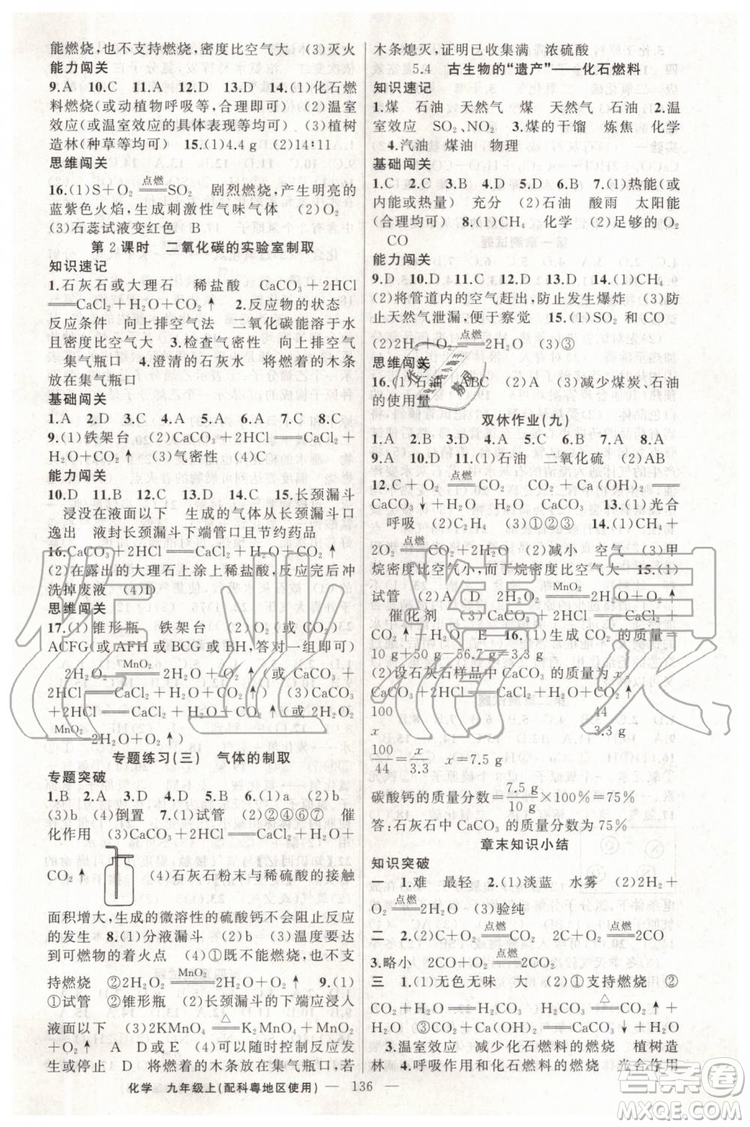 能燃烧,也不支持燃烧,密度比空气大　(3)灭火
能力闯关
9.A　10.D　11.A　12.D　13.D　14.(1)化石燃
料燃烧(或动植物呼吸等,合理即可)　(2)温室
效应(或温室效应的具体表现等均可)　(3)植树
造林(种草等均可)　15.(1)4.4 g　(2)14∶11
思维闯关
16.(1)S+O₂ 点燃 SO₂　剧烈燃烧,产生明亮的
蓝紫色火焰,生成刺激性气味气体　(2)O₂
(3)石蕊试液变红色　B
第2课时　二氧化碳的实验室制取
知识速记
1.石灰石或大理石　稀盐酸　CaCO₃+2HCl
══CaCl₂+H₂O+CO₂↑　2.反应物的状态
反应条件　向上排空气法　二氧化碳能溶于水
且密度比空气大　3.检查气密性　向上排空气
法　集气瓶口　4.澄清的石灰水　将燃着的木条
放在集气瓶口
基础闯关
1.A　2.D　3.C　4.A　5.A　6.C　7.C　8.C
9.(1)铁架台　(2)CaCO₃+2HCl══CaCl₂+
H₂O+CO₂↑　(3)气密性
能力闯关
10.D　11.B　12.C　13.D　14.A　15.长颈漏斗
浸没在液面以下　生成的气体从长颈漏斗口
逸出　液封长颈漏斗下端管口且节约药品
16.CaCO₃+2HCl══CaCl₂+H₂O+CO₂↑
(2)在露出的大理石上涂上稀盐酸,反应后冲
洗掉废液　(4)D
思维闯关
17.(1)锥形瓶　铁架台　(2)O₂(或CO₂)
ACFG(或BCG或ACG或BH,答对一组即可)
2H₂O₂ MnO₂ 2H₂O+O₂↑(或CaCO₃
+2HCl══CaCl₂+H₂O+CO₂↑或
2H₂O₂ MnO₂ 2H₂O+O₂↑)
专题练习(三)　气体的制取
专题突破
1.B　2.A　3.B　4.B　5.A　6.(1)a　(2)b
(3)a　(4)倒置　7.(1)试管　(2)②④⑥⑦　催
化作用　(3)CaCO₃+2HCl══CaCl₂+H₂O+
CO₂↑　(4)石灰石粉末与稀硫酸的接触
面积增大,生成的微溶性的硫酸钙不会阻止反应
的发生　8.(1)分液漏斗　(2)a　(3)温度达到
可燃物的着火点　(4)不能燃烧,也不支
持燃烧　②2H₂O₂ MnO₂ 2H₂O+O₂↑　9.(1)
①试管　②锥形瓶　(2)长颈漏斗的下端应浸入
液面以下　(3)2KMnO₄ △ K₂MnO₄+MnO₂
+O₂↑　②CaCO₃+2HCl══CaCl₂+H₂O+
CO₂↑　将燃着的木条放在集气瓶瓶口,若
木条熄灭,证明已收集满　浓硫酸
5.4　古生物的“遗产”——化石燃料
知识速记
1.煤　石油　天然气　煤　天然气　石油　2.温
室效应　SO₂、NO₂　3.煤的干馏　炼焦　化学
4.汽油　煤油　物理
基础闯关
1.C　2.C　3.A　4.D　5.C　6.B　7.(1)热能(或
内能)　充分　(2)石油　酸雨　太阳能
(合理即可)　8.(1)CH₄　(2)CH₄　(2)足够的O₂
CO
能力闯关
9.D　10.D　11.A　12.A　13.A　14.C　15.(1)CH₄
(2)将管道内的空气赶出,防止发生爆炸　(3)防
止天然气泄漏,便于察觉　(4)SO₂和CO
(2)2H₂+O₂ 点燃 2H₂O　(3)③
思维闯关
16.(1)石油　ABC　(2)A　(3)减少煤炭、石油
的使用量
双休作业(九)
1.A　2.D　3.C　4.D　5.B　6.B　7.A　8.A
9.A　10.B　11.(1)石油　二氧化硫　(2)酸雨
12.(1)C+O₂ 点燃 CO₂　CO₂+Ca(OH)₂══
CaCO₃↓+H₂O　(2)C₂H₄　13.(1)光合
呼吸　(2)C₂H₄　(3)①②③　14.(1)CH₄+
2O₂ 点燃 CO₂+2H₂O　(2)减小　空气　(3)甲
烷密度比空气小,而丁烷密度比空气大　15.(1)
试管　(2)A　D　2H₂O₂ MnO₂ 2H₂O+O₂↑
催化剂　(3)C　H₂O　E　16.(1)生成CO₂的质量为
10 g+50 g-56.7 g=3.3 g
(2)设石灰石样品中CaCO₃的质量为x
CaCO₃+2HCl══CaCl₂+H₂O+CO₂↑
100　44
x　3.3 g
100/44=x/3.3　x=7.5 g
碳酸钙的质量分数=7.5 g/10 g×100%=75%
答:石灰石中CaCO₃的质量分数为75%
章末知识小结
知识突破
一　1.难　最轻　2.(1)淡蓝　水雾　(2)2H₂
+O₂ 点燃 2H₂O　(3)验纯
二　(2)C+O₂ 点燃 CO₂　2C+O₂ 点燃 2CO
3.略小　2CO+O₂ 点燃 2CO₂
三　1.(1)无色无味　大　(2)①支持燃烧　②
CO₂+H₂O══H₂CO₃　H₂CO₃ △ H₂O+CO₂↑
③CO₂+Ca(OH)₂══CaCO₃↓+H₂O
④温室效应　减少化石燃料的燃烧　减少煤和
石油和化石燃料的燃烧　光合作用
化学　九年级上(配科粤地区使用)　— 136 —
作业精灵
答案圈